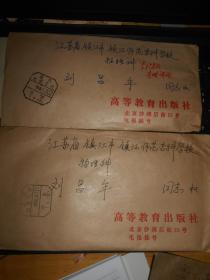 江苏省镇江市镇江师范专科学校
物理科
刘昌年 同志收
高等教育出版社
北京沙滩后街55号
电报挂号
江苏省镇江市镇江师范专科学校
物理科
刘昌年 同志收
高等教育出版社
北京沙滩后街55号
电报挂号